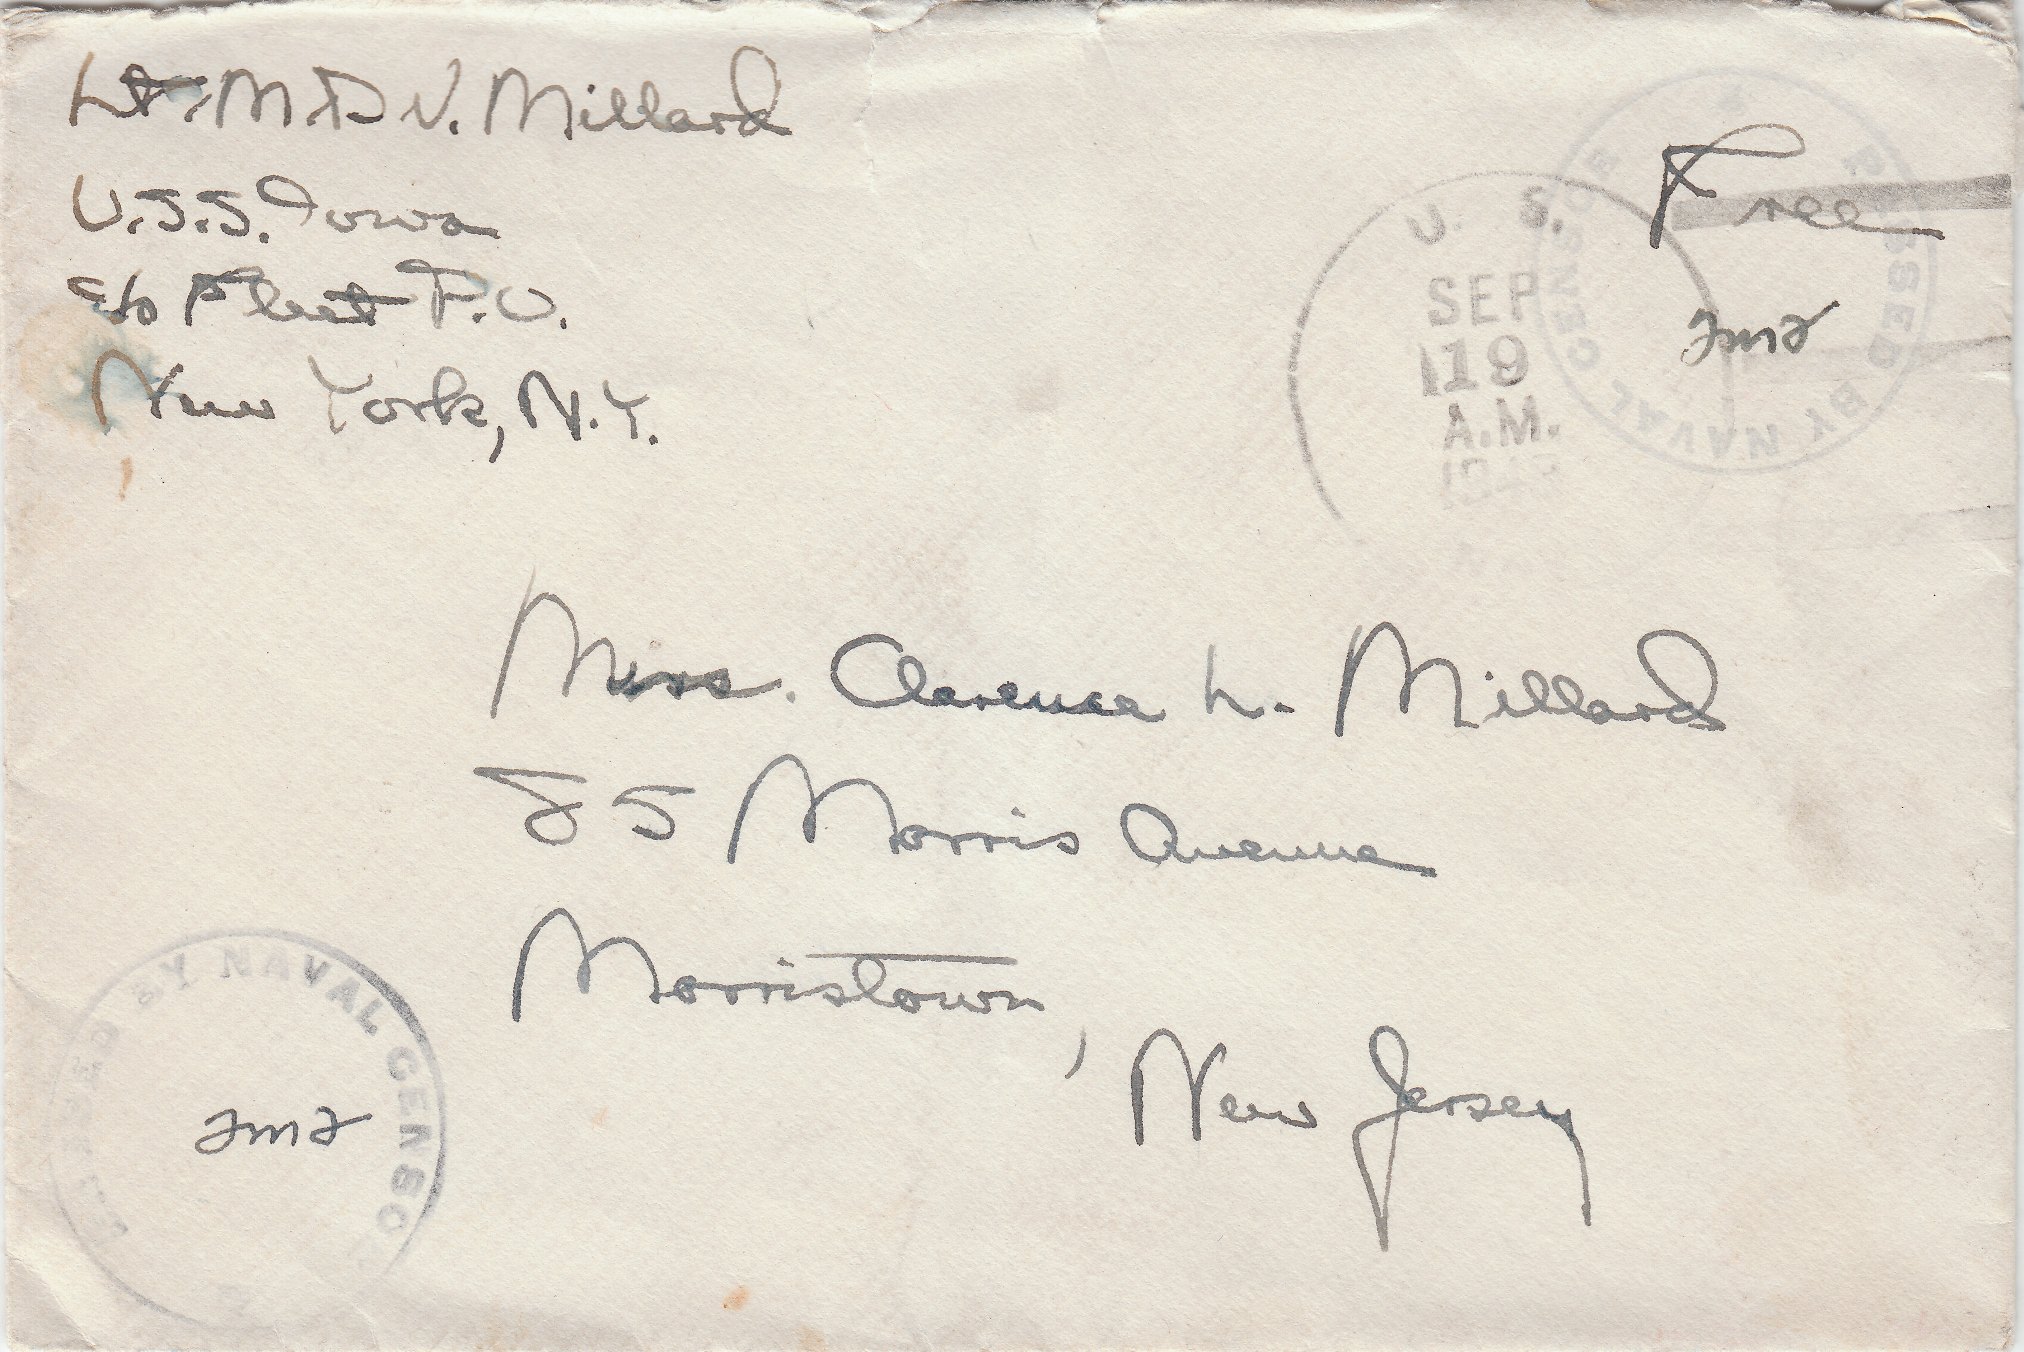 Lt. M.D.V. Millard
U.S.S. Iowa
c/o Fleet P.O.
New York, N.Y.
Free
U. S.
SEP
19
A.M.
1943
PASSED BY NAVAL CENSOR
Mrs. Clarence L. Millard
85 Morris Avenue
Morristown,
New Jersey
PASSED BY NAVAL CENSOR